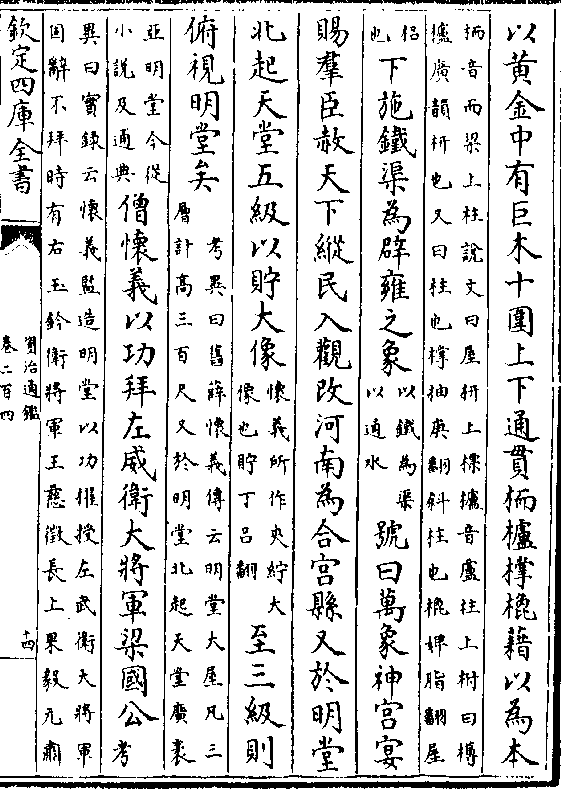 以黄金中有巨木十圍上下通貫栭櫨橕㮰藉以為本
栭音而梁上柱說文曰屋枅上標櫨音盧柱上柎曰欂
櫨廣韻枅也又曰柱也橕抽庚翻斜柱也㮰婢脂翻屋
梠也下施鐵渠為辟雍之象以鐵為渠以通水號曰萬象神宫宴
賜羣臣赦天下縱民入觀改河南為合宫縣又於明堂
北起天堂五級以貯大像懷義所作夾紵大像也貯丁吕翻至三級則
俯視明堂矣考異曰舊薛懷義傳云明堂大屋凡三層計高三百尺又於明堂北起天堂廣袤
亞明堂今從小說及通典僧懷義以功拜左威衛大將軍梁國公考
異曰實録云懷義監造明堂以功擢授左武衛大將軍
固辭不拜時有右玉鈐衛將軍王慈徵長上果毅元肅
欽定四庫全書
資治通鑑
卷二百四
十四